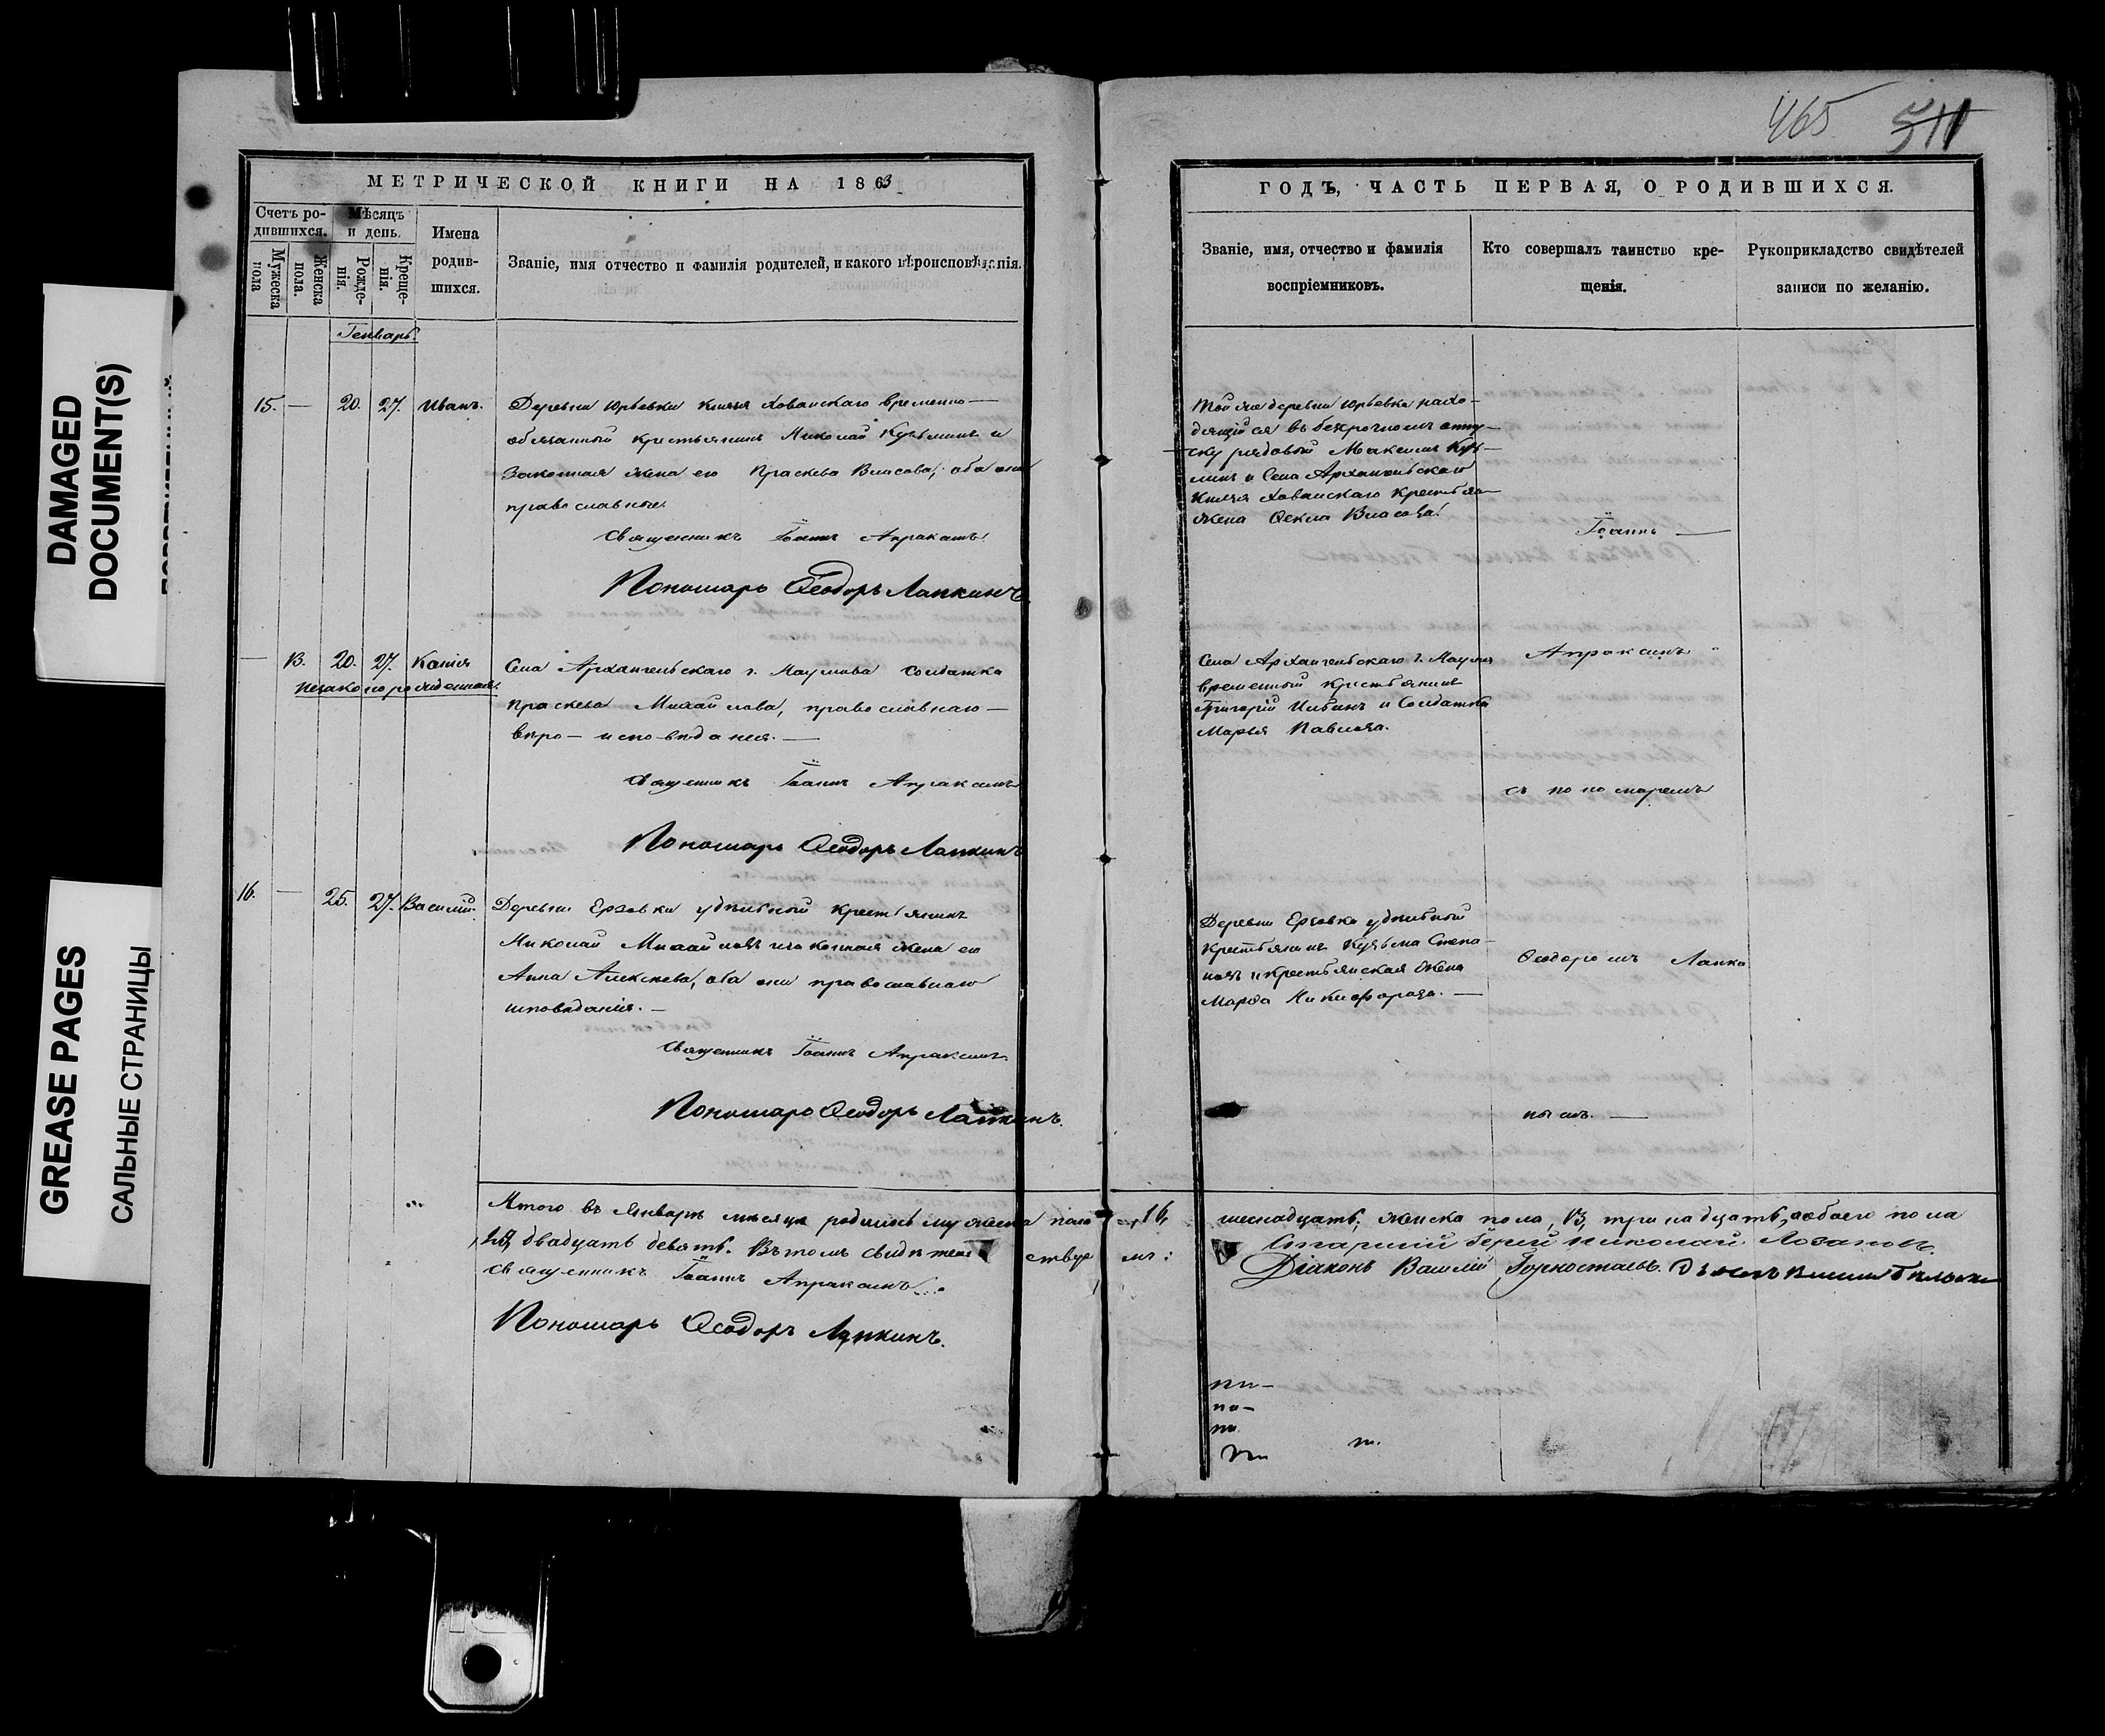 DAMAGED
DOCUMENT(S)
GREASE PAGES
САЛЬНЫЕ СТРАНИЦЫ
МЕТРИЧЕСКОЙ КНИГИ НА 1863
Счетъ ро-
дившихся.
Мужеска
пола
Женска
пола.
Мѣсяцъ
и день.
Рожде-
нія.
Креще-
нія.
Имена
родив-
шихся.
Званіе, имя отчество и фамилія родителей, и какого вѣроисповѣданія.
Генварь
15. — 20. 27. Иванъ.
Деревни Юрьевки князя Хованскаго временно —
обязанный крестьянинъ Николай Кузьминъ и
законная жена его Праскева Власова, оба они
православные
Священникъ Іоаннъ Апраксинъ.
Пономарь Ѳеодоръ Лапкинъ.
— 13. 20. 27. Ксенія
незаконорожденная.
Села Архангельскаго г. Наумова солдатка
Праскева Михайлова, православнаго —
вѣро-исповѣданія. —
Священникъ Іоаннъ Апраксинъ
Пономарь Ѳеодоръ Лапкинъ
16. — 25. 27. Василій.
Деревни Ерзовки удѣльный крестьянинъ
Николай Михайловъ и законная жена его
Анна Алексѣева, оба они православнаго
исповѣданія. —
Священникъ Іоаннъ Апраксинъ.
Пономарь Ѳеодоръ Лапкинъ.
Итого въ Январѣ мѣсяцѣ родилось мужеска пола 16,
29, двадцать девять. Въ томъ свидѣтель ствуе мъ:
Священникъ Іоаннъ Апраксинъ
Пономарь Ѳеодоръ Лапкинъ.
465 511
ГОДЪ, ЧАСТЬ ПЕРВАЯ, О РОДИВШИХСЯ.
Званіе, имя, отчество и фамилія
воспріемниковъ.
Кто совершалъ таинство кре-
щенія.
Рукоприкладство свидѣтелей
записи по желанію.
Той же деревни Юрьевки нахо-
дящійся въ безсрочномъ отпу-
ску рядовой Максимъ Кузь-
минъ и Села Архангельскаго
Князя Хованскаго крестьян-
жена Ѳекла Власова.
Іоаннъ —
Села Архангельскаго г. Наумо
временный крестьянинъ
Григорій и Солдатка
Марья Павлова.
Апраксинъ
съ пономаремъ
Деревни Ерзовки удѣльный
крестьянинъ Кузьма Степа-
новъ и крестьянская жена
Марѳа Никифорова. —
Ѳеодоромъ Лапки
нымъ. —
шеснадцать, женска пола, 13, тринадцать, а обоего пола
Старшій Іерей Николай Лозановъ.
Діаконъ Василій Горностаевъ.